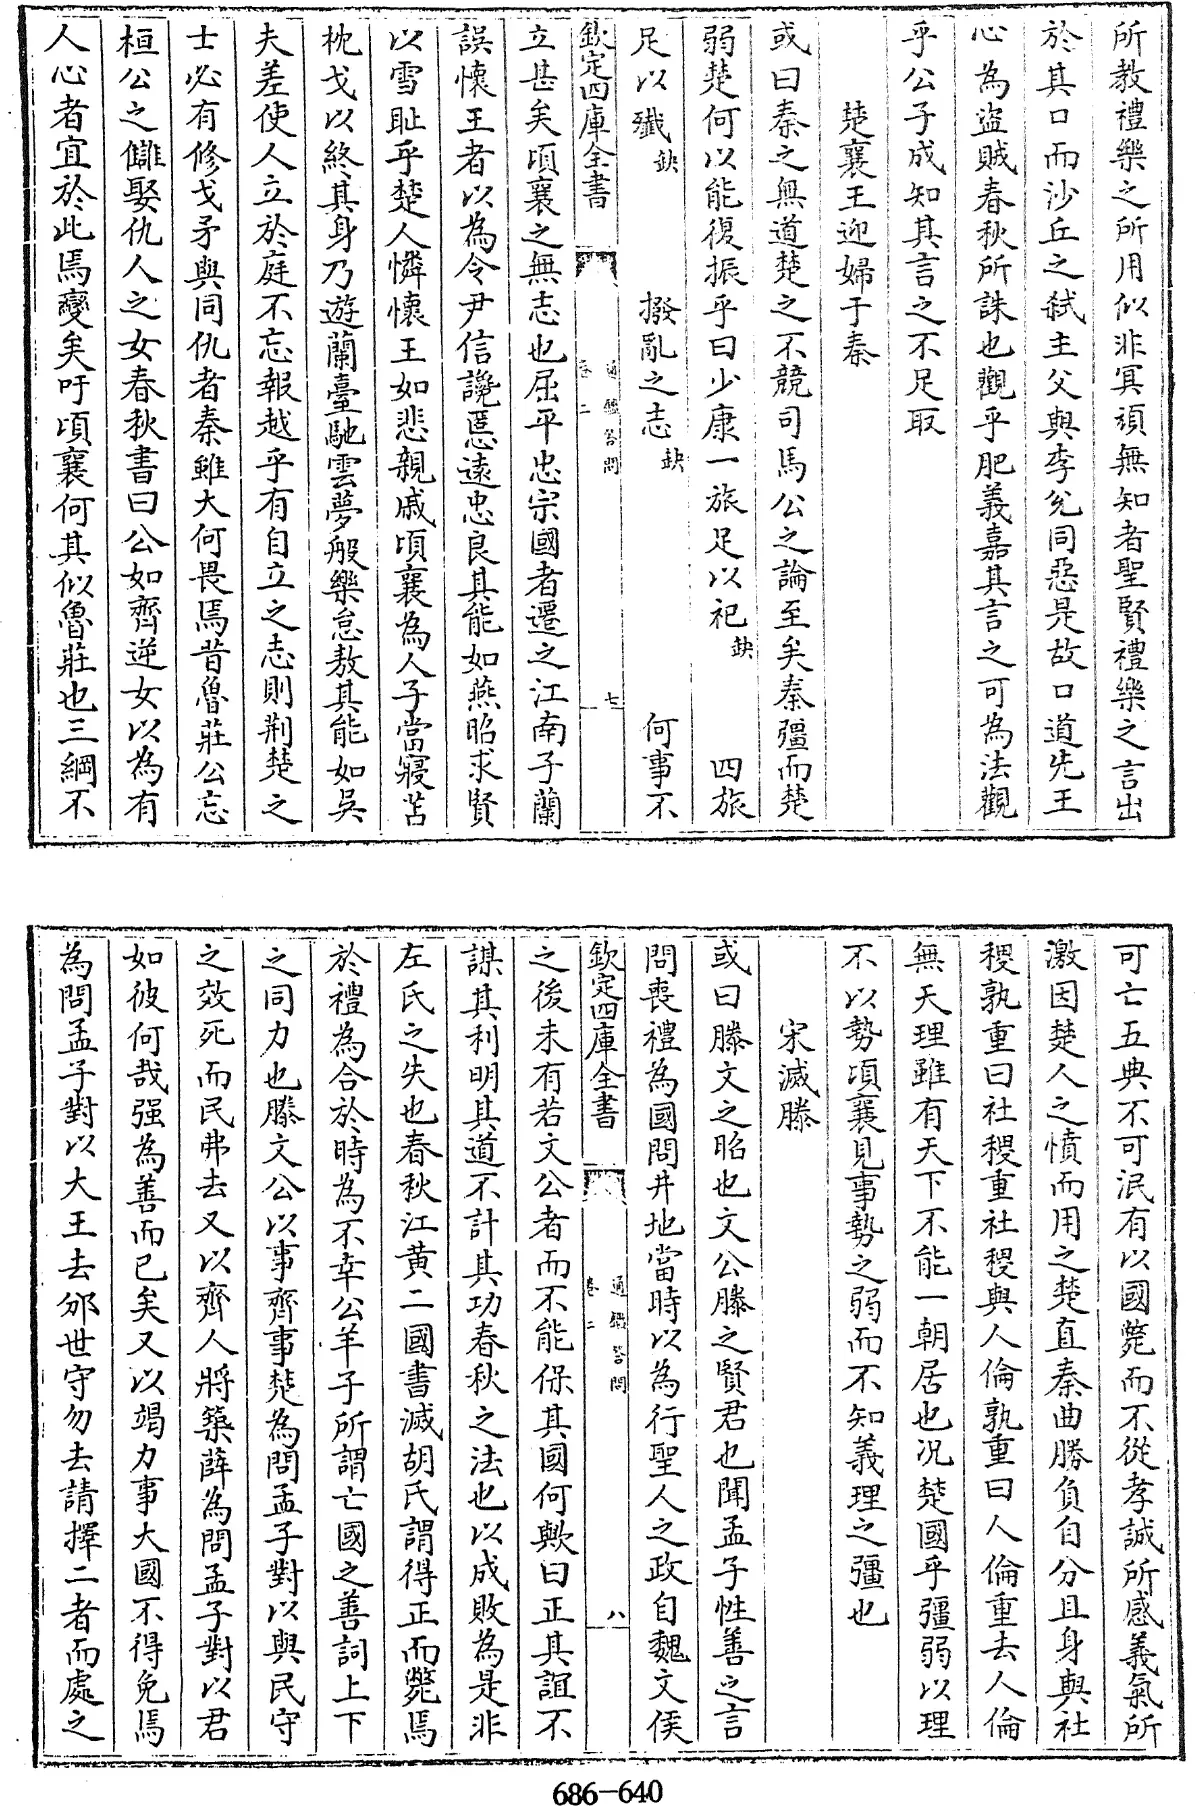 所教禮樂之所用似非冥頑無知者聖賢禮樂之言出
於其口而沙丘之弑主父與李兊同惡是故口道先王
心為盜賊春秋所誅也觀乎肥義嘉其言之可為法觀
乎公子成知其言之不足取
楚襄王迎婦于秦
或曰秦之無道楚之不競司馬公之論至矣秦彊而楚
弱楚何以能復振乎曰少康一旅足以祀缺 四旅
足以殲缺 撥亂之志缺 何事不
欽定四庫全書 通鑑答問 卷二 七
立甚矣頃襄之無志也屈平忠宗國者遷之江南子蘭
誤懷王者以為令尹信讒慝遠忠良其能如燕昭求賢
以雪恥乎楚人憐懷王如悲親戚頃襄為人子當寢苫
枕戈以終其身乃遊蘭臺馳雲夢般樂怠敖其能如吳
夫差使人立於庭不忘報越乎有自立之志則荆楚之
士必有修戈矛與同仇者秦雖大何畏焉昔魯莊公忘
桓公之讎娶仇人之女春秋書曰公如齊逆女以為有
人心者宜於此焉變矣吁頃襄何其似魯莊也三綱不
可亡五典不可泯有以國斃而不從孝誠所感義氣所
激因楚人之憤而用之楚直秦曲勝負自分且身與社
稷孰重曰社稷重社稷與人倫孰重曰人倫重去人倫
無天理雖有天下不能一朝居也况楚國乎彊弱以理
不以勢頃襄見事勢之弱而不知義理之彊也
宋滅滕
或曰滕文之昭也文公滕之賢君也聞孟子性善之言
問喪禮為國問井地當時以為行聖人之政自魏文侯
欽定四庫全書 通鑑答問 卷二 八
之後未有若文公者而不能保其國何歟曰正其誼不
謀其利明其道不計其功春秋之法也以成敗為是非
左氏之失也春秋江黄二國書滅胡氏謂得正而斃焉
於禮為合於時為不幸公羊子所謂亡國之善詞上下
之同力也滕文公以事齊事楚為問孟子對以與民守
之效死而民弗去又以齊人將築薛為問孟子對以君
如彼何哉强為善而已矣又以竭力事大國不得免焉
為問孟子對以大王去邠世守勿去請擇二者而處之
686-640